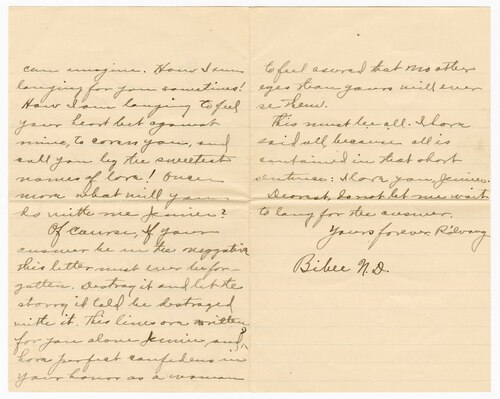 can imagine. How I am
longing for you sometimes!
How I am longing to feel
your heart beat against
mine, to caress you, and
call you by the sweetest
names of love! Once
more what will you
do with me Jennie?
Of course, if your
answer be in the neggative
this letter must ever be for-
gotten. Destroy it and let the
storry it told be destroyed
with it. This lines are written
for you alone Jennie, and I
have perfect confidens in
your honor as a woman
to feel asured that no other
eyes than yours will ever
se them.
This must be all. I have
said all because all is
contained in that short
sentense: I love you, Jennie.
Dearest, do not let me wait
to long for the answer.
Yours forever,
Bibee N.D.